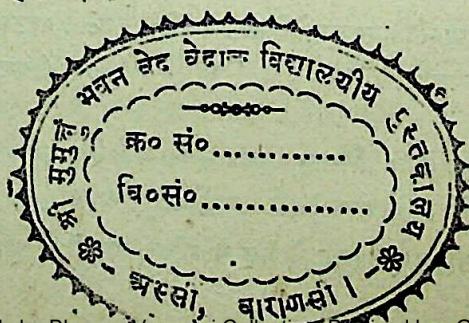 श्री मुमुक्षु भवन वेद वेदाङ्ग विद्यालयीय पुस्तकालय
क्र० सं०.............
वि०सं०................
अस्सी, वाराणसी।